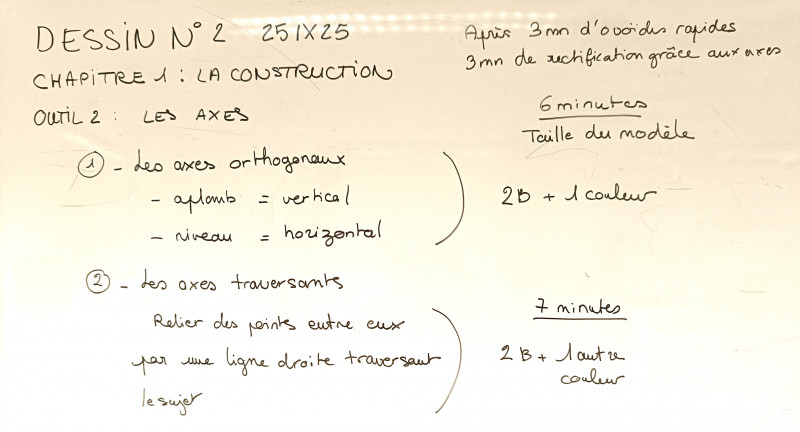 DESSIN N° 2 25/IX25
CHAPITRE 1 : LA CONSTRUCTION
OUTIL 2 : LES AXES
① - Les axes orthogonaux
- aplomb = vertical
- niveau = horizontal
② - Les axes traversants
Relier des points entre eux
par une ligne droite traversant
le sujet
Après 3mn d'ovoïdes rapides
3mn de rectification grâce aux axes
6 minutes
Taille du modèle
2B + 1 couleur
7 minutes
2B + 1 autre
couleur